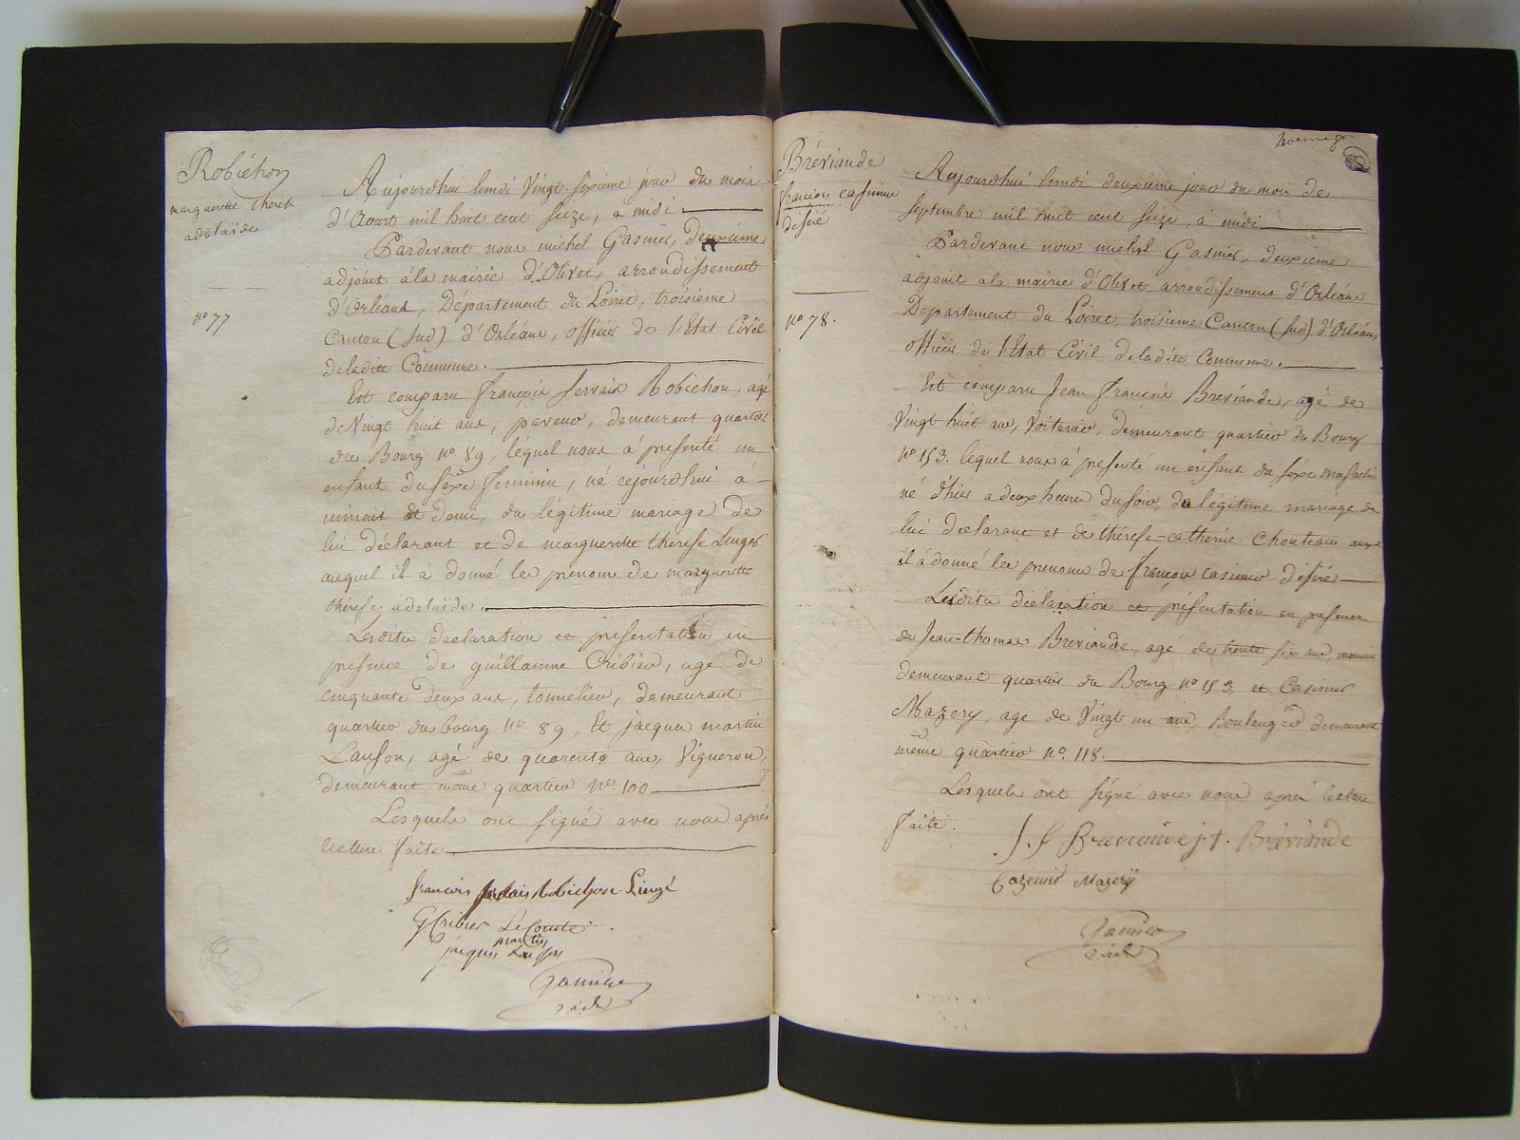 Robichon
margueritte therese
adelaïde
n° 77
Aujourdhui lundi Vingt-sixieme jour du mois
d'Aoust mil huit cent seize, à midi
Pardevant nous michel Gasnier, deuxieme
adjoint à la mairie d'Olivet, arrondissement
d'Orléans, Département du Loiret, troisieme
Canton (sud) d'Orléans, officier de l'Etat Civil
de ladite Commune.
Est comparu françois servais Robichon, agé
de Vingt huit ans, demeurant quartier
du Bourg n° 89, léquel nous à présenté un
enfant du sexe feminin, né cejourdhui à
minuit et demi, du légitime mariage de
lui déclarant et de margueritte thérese
auquel il à donné les prenoms de marguerite
thérese adelaïde.
Lesdites declaration et présentation en
présence de guillaume Cribier, age de
cinquante deux ans, tonnelier, demeurant
quartier du bourg n° 89, Et jacques martin
Lanson, agé de quarente ans, Vigneron,
demeurant même quartier n° 100
Lesquels ont signé avec nous après
lecture faite
françois Robichon
G Cribier Le Comte
martin
jaques
Gasnier
adj.
Bréviande
françois casimir
desiré
n° 78.
Aujourdhui lundi deuxieme jour du mois de
Septembre mil huit cent seize, à midi
Pardevant nous michel Gasnier, deuxieme
adjoint a la mairie d'Olivet arrondissement d'Orléans
Département du Loiret, troisieme Canton (sud) d'Orléans,
officier de l'Etat Civil de ladite Commune.
Est comparu Jean françois Breviande, agé de
Vingt-huit ans, Voiturier, demeurant quartier du Bourg
n° 153. léquel nous à présenté un enfant du sexe masculin
né d'hier a deux heures du soir, du légitime mariage de
lui déclarant et de thérese-catherine Chouteau auquel
il à donné les prenoms de françois casimir desiré
Lesdites déclaration et présentation en présence
de Jean-thomas Breviande, age de trente six ans,
demeurant quartier du Bourg n° 153 et Casimir
Mazery, age de Vingt un ans, Boulanger demeurant
même quartier n° 118.
Lesquels ont signé avec nous après lecture
faite.
J. f Breviande j. t. Bréviande
Mazery
Gasnier
adj.